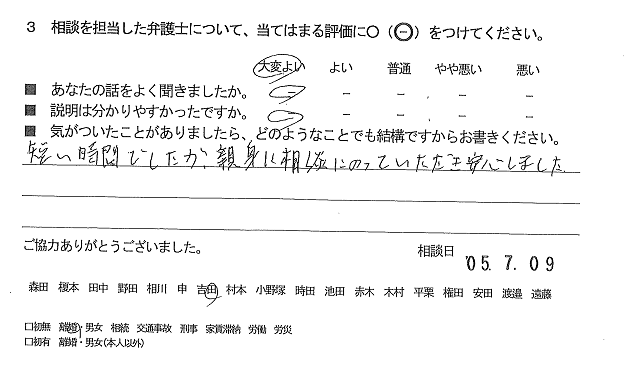 3 相談を担当した弁護士について、当てはまる評価に○（㊀）をつけてください。
大変よい よい 普通 やや悪い 悪い
■ あなたの話をよく聞きましたか。 － － － －
■ 説明は分かりやすかったですか。 － － － －
■ 気がついたことがありましたら、どのようなことでも結構ですからお書きください。
短い時間でしたが、親身に相談にのっていただき安心しました
ご協力ありがとうございました。 相談日 '05.7.09
森田 榎本 田中 野田 相川 申 吉田 村本 小野塚 時田 池田 赤木 木村 平栗 権田 安田 渡邉 遠藤
□初無 離婚・男女 相続 交通事故 刑事 家賃滞納 労働 労災
□初有 離婚・男女（本人以外）